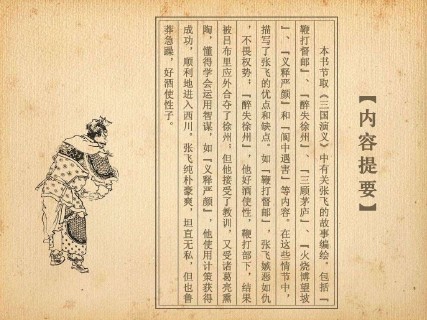 【内容提要】
本书节取《三国演义》中有关张飞的故事编绘，包括『
鞭打督邮』、『醉失徐州』、『三顾茅庐』、『火烧博望坡
』、『义释严颜』和『阆中遇害』等内容。在这些情节中，
描写了张飞的优点和缺点。如『鞭打督邮』，张飞嫉恶如仇
，不畏权势；『醉失徐州』，他好酒使性，鞭打部下，结果
被吕布里应外合夺了徐州；但他接受了教训，又受诸葛亮熏
陶，懂得学会运用智谋，如『义释严颜』，他使用计策获得
成功，顺利地进入西川。张飞纯朴豪爽、坦直无私，但也鲁
莽急躁，好酒使性子。